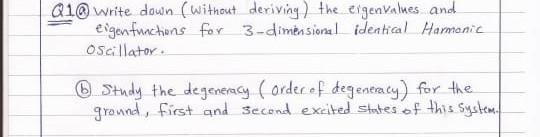 Q1 ⓐ Write down (without deriving) the eigenvalues and
eigenfunctions for 3-dimensional identical Harmonic
Oscillator.
ⓑ Study the degeneracy (order of degeneracy) for the
ground, first and second excited states of this system.